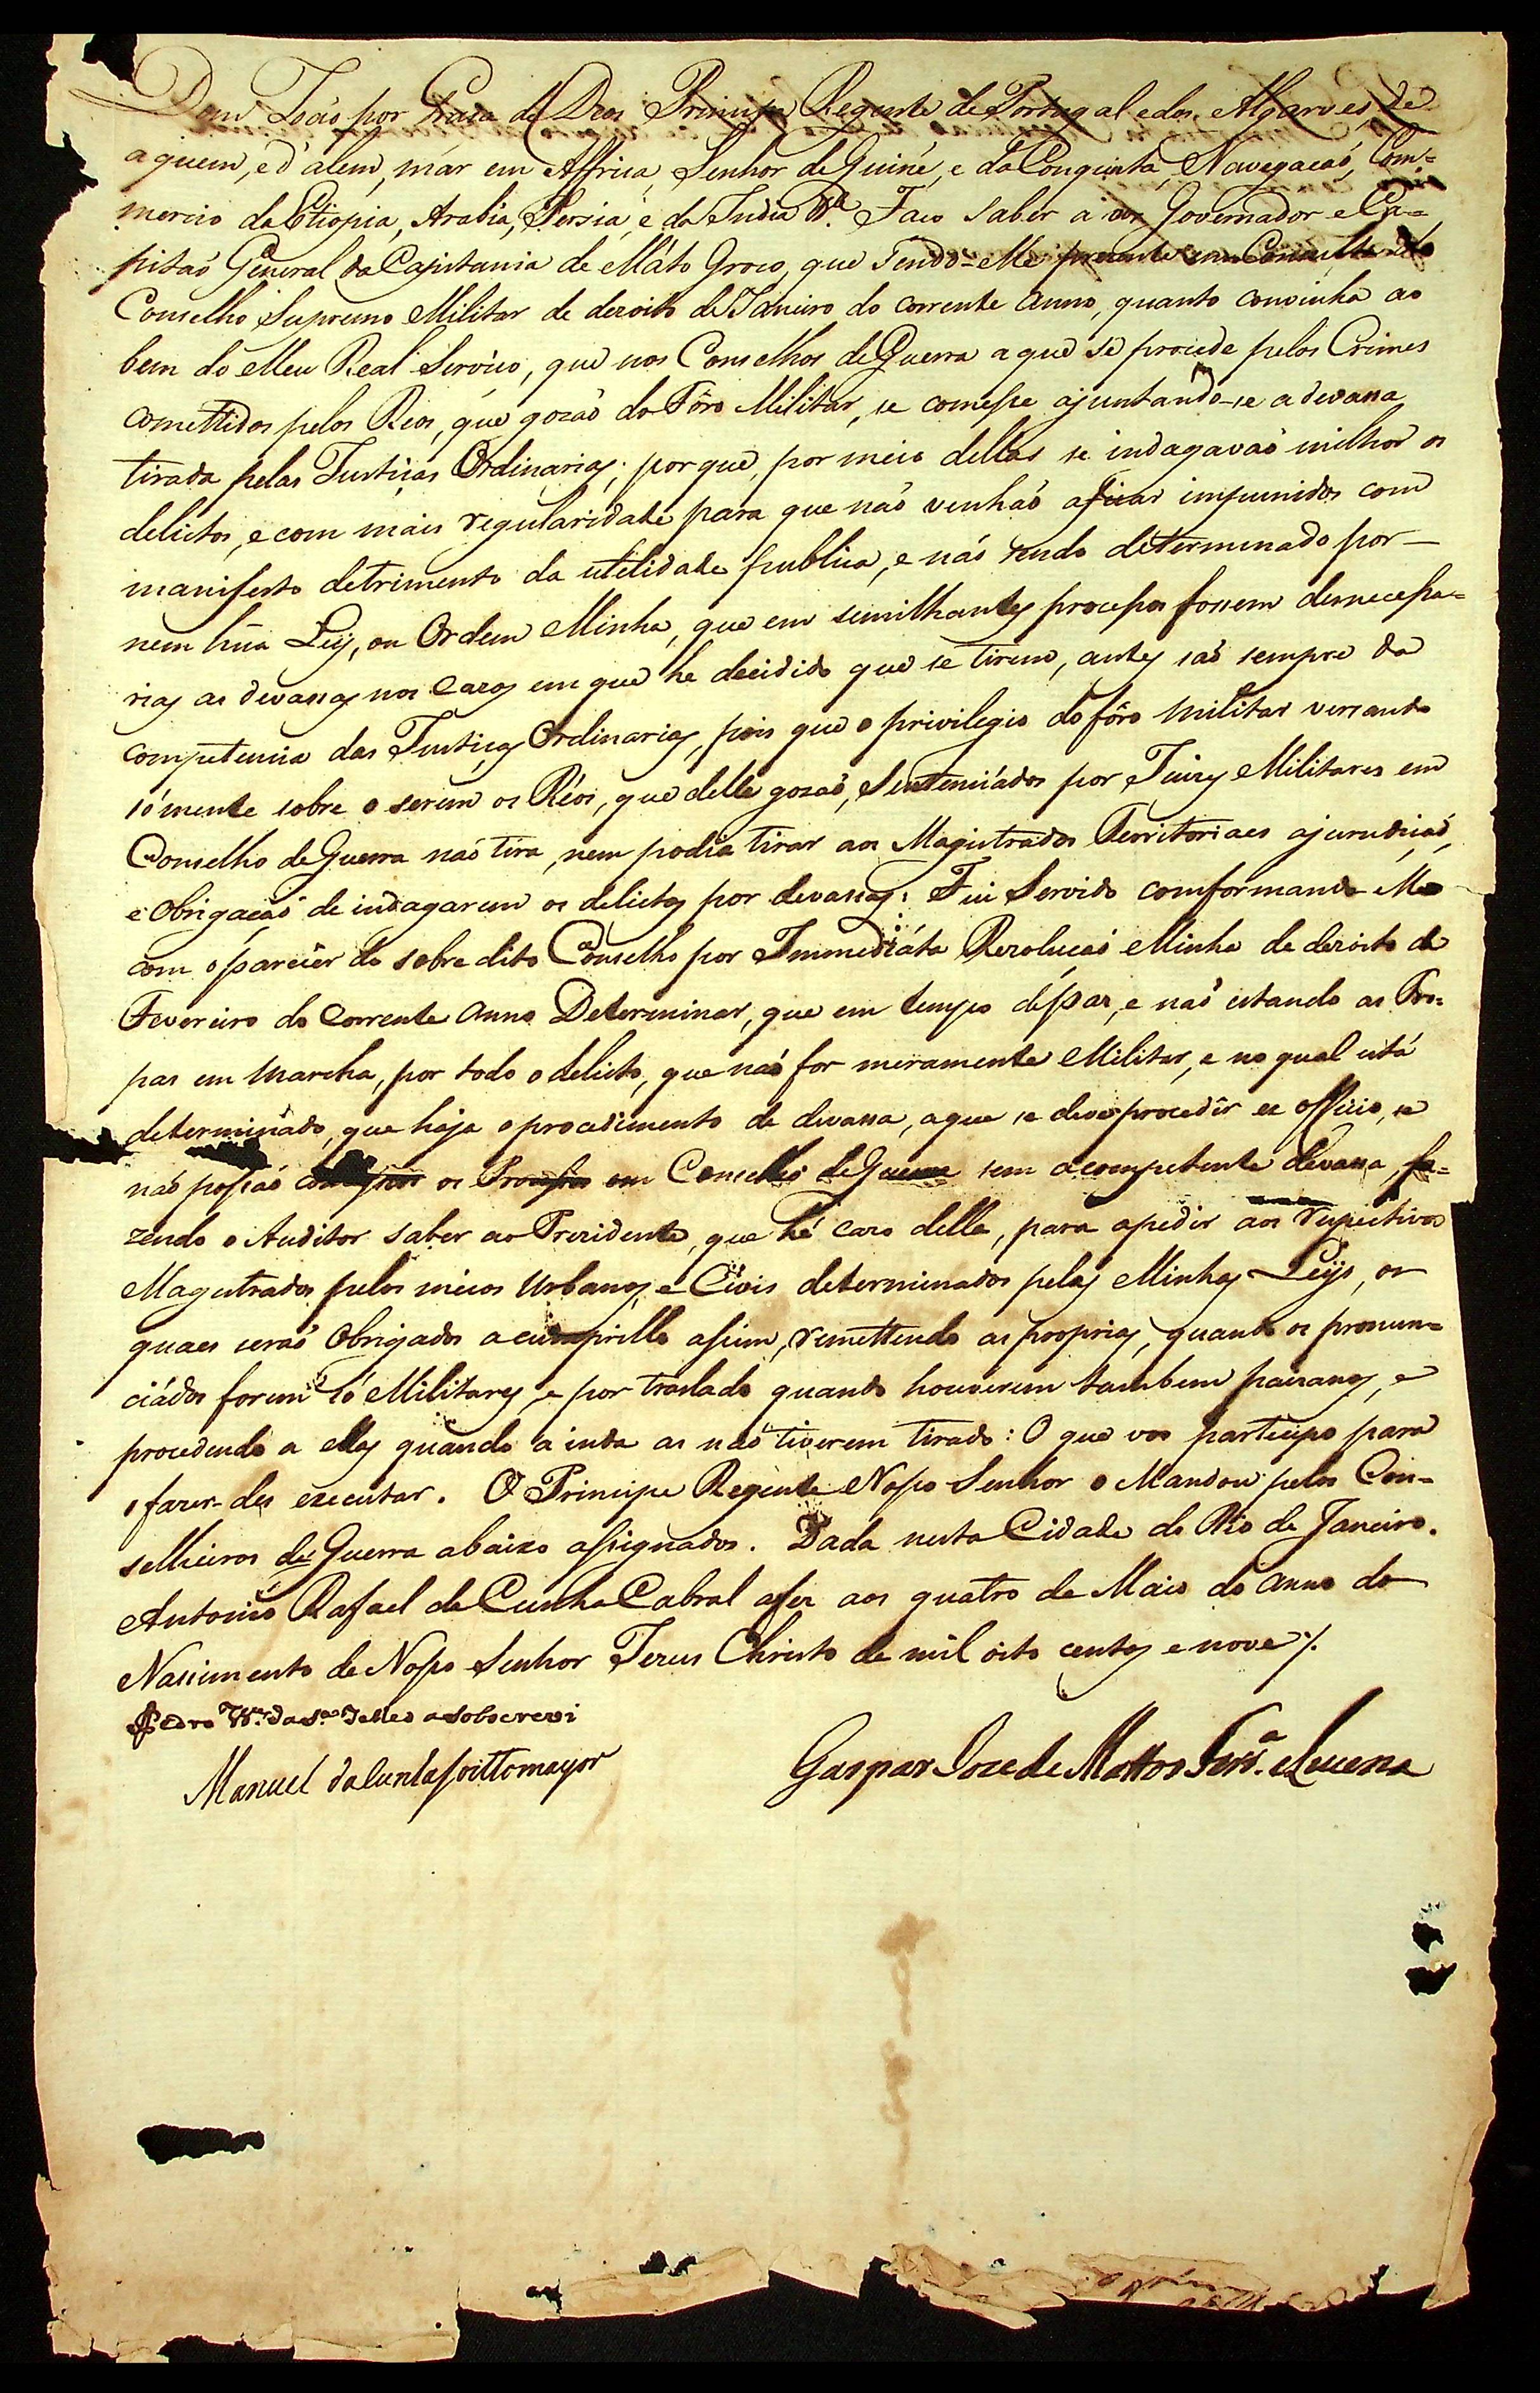 Dom João por Graça de Deos Principe Regente de Portugal e dos Algarves, de
aquem, e d'alem, már em Affrica, Senhor de Guiné, e da Conquista, Navegacaó, Com=
mercio da Etiopia, Arabia, Persia, e da India &.ª Faço saber a vos Governador e Ca=
pitaó General da Capitania de Máto Groço, que Sendo-Me prezente em Consulta do
Conselho Supremo Militar de dezoito de Janeiro do corrente anno, quanto convinha ao
bem do Meu Real Serviço, que nos Conselhos de Guerra a que se procede pelos Crimes
comettidos pelos Reos, que gozaó do Fôro Militar, se comesse ajuntando-se a devassa
tirada pelas Justiças Ordinarias; porque, por meio dellas se indagavaó milhor os
delictos, e com mais regularidade para que naó venhaó aficar impunidos com
manifesto detrimento da utilidade publica, e naó sendo determinado por
nem hũa Ley, ou Ordem Minha, que em similhantes processos fossem desnecessa=
rias as devassas nos cazos em que he decidido que se tirem, antes saó sempre da
competencia das Justiças Ordinarias, pois que o privilegio do fôro Militar versando
sómente sobre o serem os Réos, que delle gozaó, Sentenciados por Juizes Militares em
Conselho de Guerra naó tira, nem podia tirar aos Magistrados Territoriaes ajurudiçaó,
e obrigaçaó de indagarem os delictos por devassas: Fui Servido comformando-Me
com o parecêr do sobre dito Conselho por Immediáta Rezoluçaó Minha de dezoito de
Fevereiro do corrente anno Determinar, que em tempo de paz, e naó estando as Tro=
pas em marcha, por todo o delicto, que naó for meramente Militar, e no qual está
determinado, que haja o procedimento de devassa, aque se deve procedêr ex officio, se
naó possaó os Processos em Conselho de Guerra sem acompetente devassa, fa=
zendo o Auditor saber ao Prezidente, que hé cazo della, para apedir aos respectivos
Magistrados pelos meios Urbanos, e Civis determinados pelas Minhas Leys, os
quaes seraó obrigados acumprillo assim, remettendo as proprias, quando os pronun=
ciádos forem só Militares, e por traslado quando houverem tambem paizanos, e
procedendo a ellas quando ainda as naó tiverem tirado: O que vos participo para
o fazer-des executar. O Principe Regente Nosso Senhor o Mandou pelos Con=
selheiros de Guerra abaixo assignados. Dada nesta Cidade do Rio de Janeiro.
Antonio Rafael da Cunha Cabral afez aos quatro de Maio do anno do
Nascimento de Nosso Senhor Jezus Christo de mil oito centos e nove ./.
Pedro V.ra da S.a Telles a sobscrevi
Manuel da Cunha Soittomayor
Gaspar Joze de Mattos Ferr.ª e Lucena